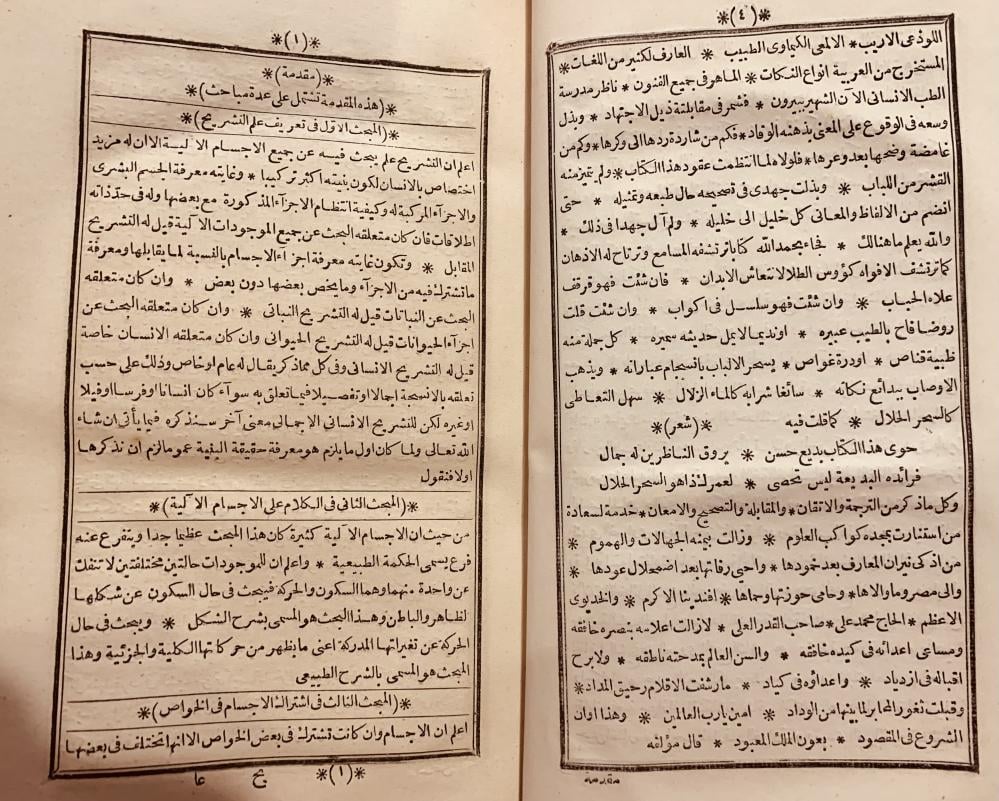 *(٤)*
اللوذعى الاريب * الالمعى الكيماوى الطبيب * العارف لكثير من اللغات *
المستخرج من العربية انواع النكات * الماهر فى جميع الفنون * ناظر مدرسة
الطب الانسانى الآن الشهير بيرون * فشمر فى مقابلته ذيل الاجتهاد * وبذل
وسعه فى الوقوع على المعنى بذهنه الوقاد * فكم من شاردة ردها الى وكرها * وكم من
غامضة وضحها بعد وعرها * فلولاه لما انتظمت عقود هذا الكتاب * ولم يتميز منه
القشر من اللباب * وبذلت جهدى فى تصحيحه حال طبعه وتمثيله * حتى
انضم من الالفاظ والمعانى كل خليل الى خليله * ولم آل جهدا فى ذلك *
والله يعلم ما هنالك * فجاء بحمد الله كتابا ترتشفه المسامع وترتاح له الاذهان
كما ترتشف الافواه كؤوس الطلا لانتعاش الابدان * فان شئت فهو قرقف
علاه الحباب * وان شئت فهو سلسل فى اكواب * وان شئت قلت
روضا فاح بالطيب عبيره * او نديما لا يمل حديثه سميره * كل جملة منه
ظبية قناص * او درة غواص * يسحر الالباب بانسجام عباراته * ويذهب
الاوصاب ببدائع نكاته * سائغا شرابه كالماء الزلال * سهل التعاطى
كالسحر الحلال * كما قلت فيه *(شعر)*
حوى هذا الكتاب بديع حسن * يروق الناظرين له جمال
فرائده البديعة ليس تحصى * لعمرك ذا هو السحر الحلال
وكل ما ذكر من الترجمة والاتقان * والمقابلة والتصحيح والامعان * خدمة لسعادة
من استنارت بمجده كواكب العلوم * وزالت بيمنه الجهالات والهموم *
من اذكى نيران المعارف بعد خمودها * واحيى رفاتها بعد اضمحلال عودها *
والى مصر وما والاها * وحامى حوزتها وحماها * افندينا الاكرم * والخديوى
الاعظم * الحاج محمد على * صاحب القدر العلى * لازالت اعلامه بنصره خافقه
ومساعى اعدائه فى كيده خافقه * والسن العالم بمدحته ناطقه * ولا برح
اقباله فى ازدياد * واعداؤه فى كياد * ما رشفت الاقلام رحيق المداد *
وقبلت ثغور المحابر لما بينها من الوداد * امين يارب العالمين * وهذا اوان
الشروع فى المقصود * بعون الملك المعبود * قال مؤلفه
مقدمه
*(١)*
*(مقدمة)*
*(هذه المقدمة تشتمل على عدة مباحث)*
*(المبحث الاول فى تعريف علم التشريح)*
اعلم ان التشريح علم يبحث فيه عن جميع الاجسام الآلية الا ان له مزيد
اختصاص بالانسان لكون بنيته اكثر تركيبا * وغايته معرفة الجسم البشرى
والاجزآء المركبة له وكيفية انتظام الاجزآء المذكورة مع بعضها وله فى حد ذاته
اطلاقات فان كان متعلقه البحث عن جميع الموجودات الآلية قيل له التشريح
المقابل * وتكون غايته معرفة اجزآء الاجسام بالنسبة لما يقابلها ومعرفة
ما تشترك فيه من الاجزآء وما يخص بعضها دون بعض * وان كان متعلقه
البحث عن النباتات قيل له التشريح النباتى * وان كان متعلقه البحث عن
اجزآء الحيوانات قيل له التشريح الحيوانى وان كان متعلقه الانسان خاصة
قيل له التشريح الانسانى وفى كل مما ذكر يقال له عام او خاص وذلك على حسب
تعلقه بالانسجة اجمالا او تفصيلا فيما تعلق به سوآء كان انسانا او فرسا او فيلا
او غيره لكن للتشريح الانسانى الاجمالى معنى آخر سنذكره فيما يأتى ان شاء
الله تعالى ولما كان اول ما يلزم هو معرفة حقيقة البنية عموما لزم ان نذكرها
اولا فنقول
*(المبحث الثانى فى الكلام على الاجسام الآلية)*
من حيث ان الاجسام الآلية كثيرة كان هذا المبحث عظيما جدا ويتفرع عنه
فرع يسمى الحكمة الطبيعية * واعلم ان للموجودات حالتين مختلفتين لا تنفك
عن واحدة منهما وهما السكون والحركة فيبحث فى حال السكون عن شكلها
لظاهر والباطن وهذا البحث هو المسمى بشرح الشكل * ويبحث فى حال
الحركة عن تغيراتها المدركة اعنى ما يظهر من حركاتها الكلية والجزئية وهذا
المبحث هو المسمى بالشرح الطبيعى
*(المبحث الثالث فى اشتراك الاجسام فى الخواص)*
اعلم ان الاجسام وان كانت تشترك فى بعض الخواص الا انها تختلف فى بعضها
*(١)* يح عا